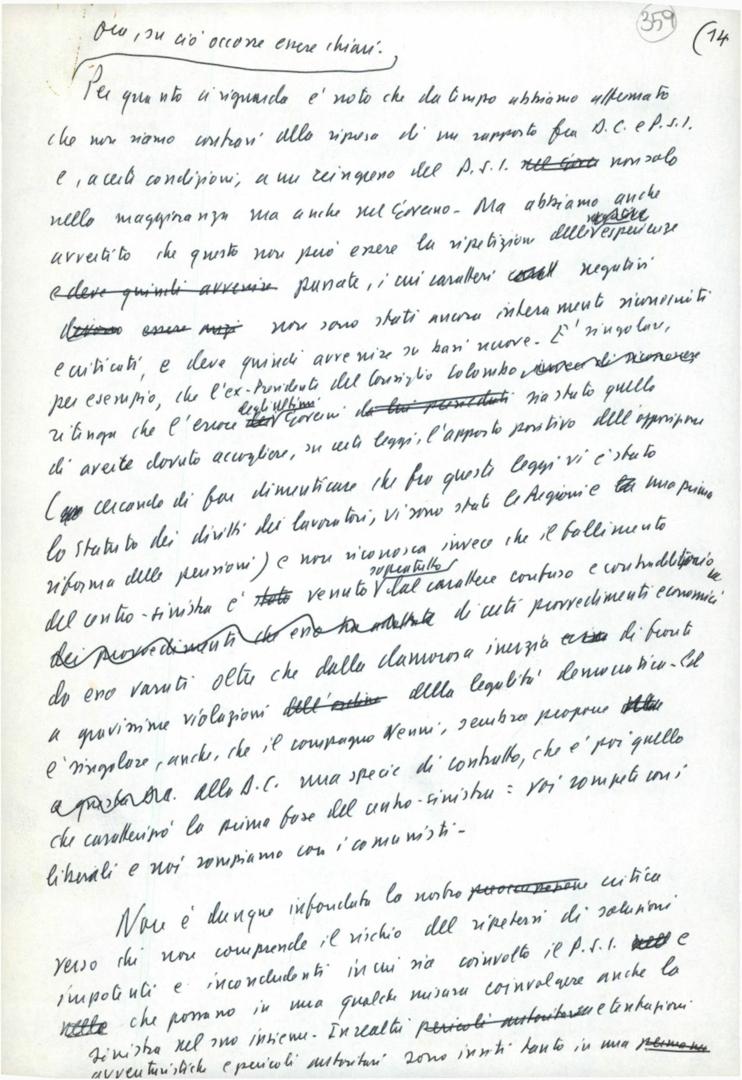 359 (14
Ora, su ciò occorre essere chiari.
Per quanto ci riguarda è noto che da tempo abbiamo affermato
che non siamo contrari alla ripresa di un rapporto fra D.C. e P.S.I.
e, a certi condizioni, a un reingresso del P.S.I. non solo
nella maggioranza ma anche nel Governo. Ma abbiamo anche
avvertito che questo non può essere la ripetizione delle esperienze
e deve quindi avvenire passate, i cui caratteri negativi
devono essere anzi non sono stati ancora interamente riconosciuti
e criticati, e deve quindi avvenire su basi nuove. E' singolare,
per esempio, che l'ex-Presidente del Consiglio Colombo invece di riconoscere
ritenga che l'errore degli ultimi Governi da lui presieduti sia stato quello
di avere dovuto accogliere, su certe leggi, l'apporto positivo dell'opposizione
(cercando di far dimenticare che fra queste leggi vi è stato
lo Statuto dei diritti dei lavoratori, vi sono state le Regioni e una prima
riforma delle pensioni) e non riconosca invece che il fallimento
del centro-sinistra è stato venuto soprattutto dal carattere confuso e contraddittorio
dei provvedimenti che eno di certi provvedimenti economici
da eno varati oltre che dalla clamorosa inerzia di fronti
a gravissime violazioni dell'ordine della legalità democratica. Ed
è singolare, anche, che il compagno Nenni, sembra proporre
a questa D.C. alla D.C. una specie di contratto, che è poi quello
che caratterizzò la prima fase del centro-sinistra: voi rompete con i
liberali e noi rompiamo con i comunisti.
Non è dunque infondata la nostra preoccupazione critica
verso chi non comprende il rischio del ripetersi di soluzioni
impotenti e inconcludenti in cui sia coinvolto il P.S.I. e
che possano in una qualche misura coinvolgere anche la
sinistra nel suo insieme. In realtà pericoli autoritari e tentazioni
avventuristiche e pericoli autoritari sono insiti tanto in una